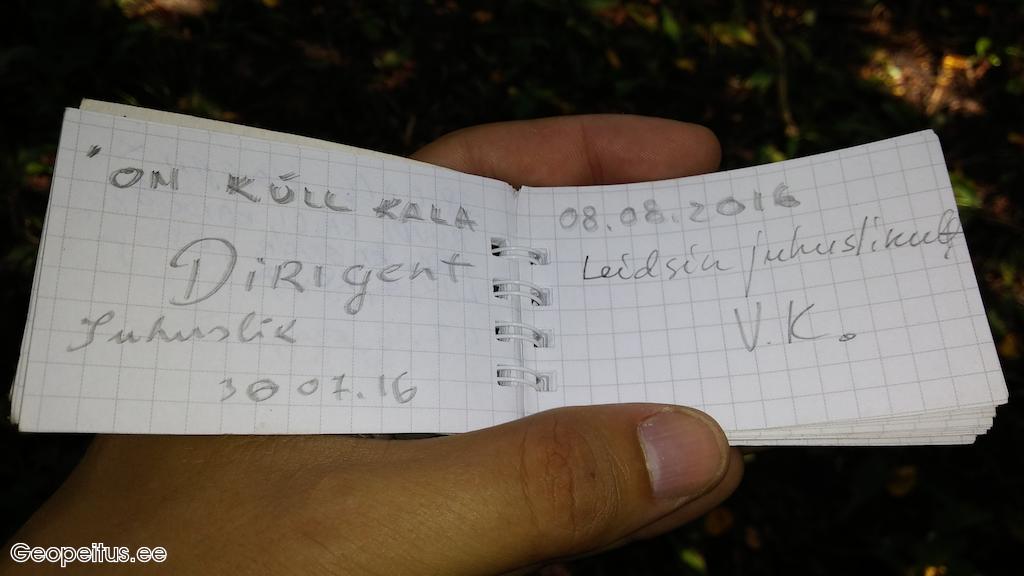 ON KÜLL KALA
DiRIgent
Juhuslik
30 07.16
08.08.2016
Leidsin juhuslikult
V.K.
Geopeitus.ee